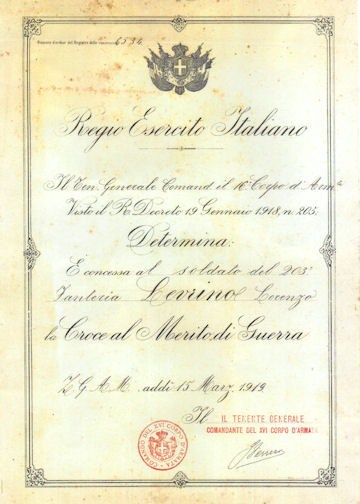 Numero d'ordine del Registro delle concessioni 6534
Regio Esercito Italiano
Il Ten. Generale Comand. il 16° Corpo d'Arm.ta
Visto il R. Decreto 19 Gennaio 1918, n. 205.
Determina:
È concessa al soldato del 203°
Fanteria Levrino Lorenzo
la Croce al Merito di Guerra
Z.G. A.M. addì 15 Marz. 1919
Il IL TENENTE GENERALE
COMANDANTE DEL XVI CORPO D'ARMATA
COMANDO DEL XVI CORPO D'ARMATA